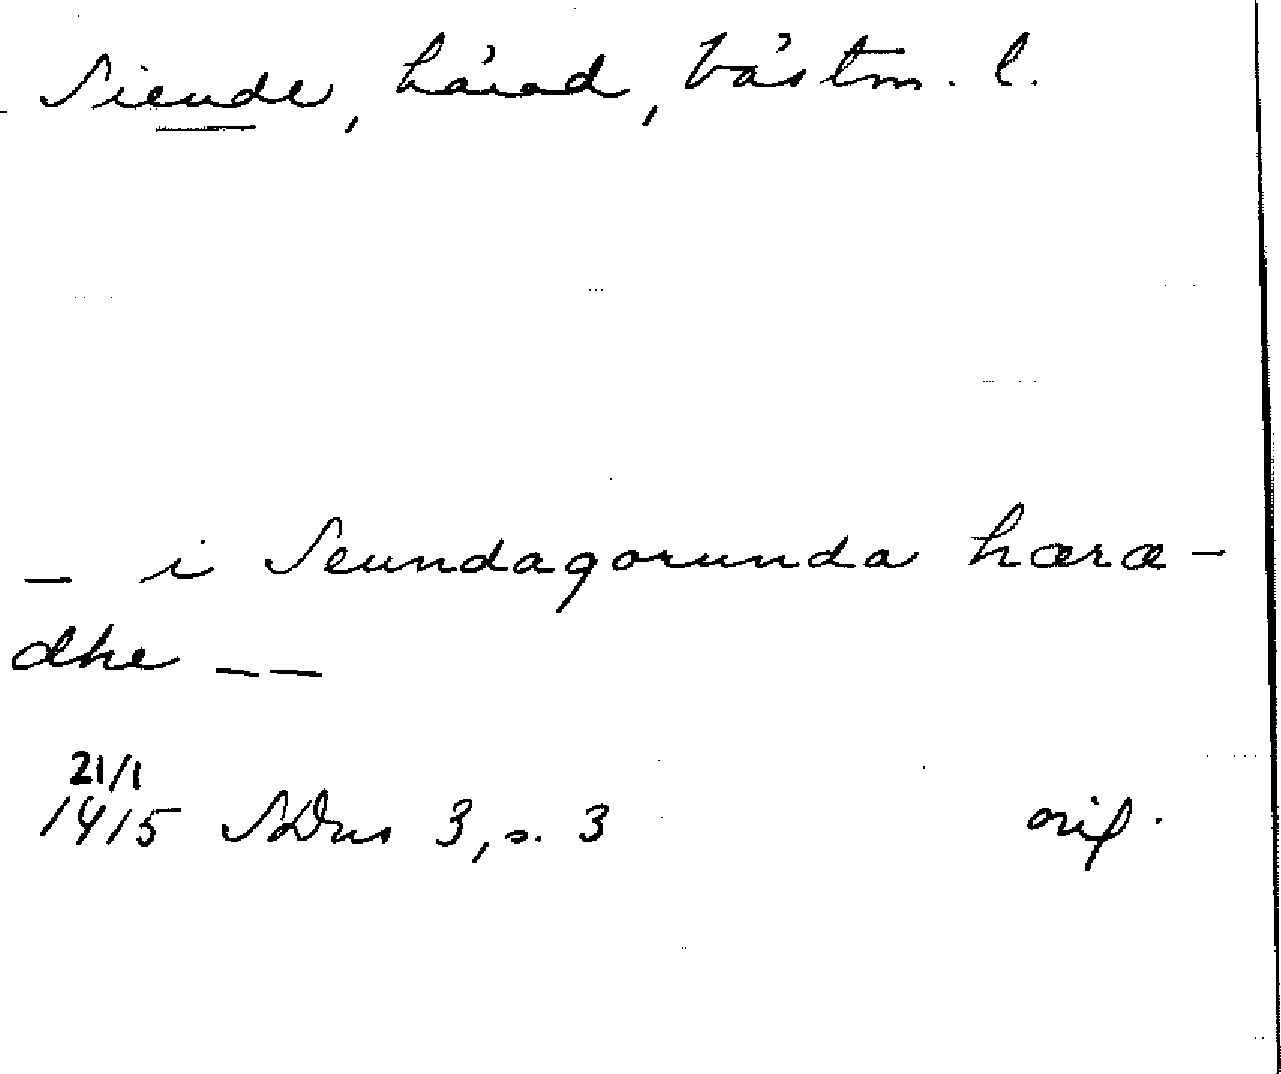 Siende, härad, Västm. l.
– i Seundagorunda hæræ-
dhe – –
21/1
1415 SDns 3, s. 3 orig.